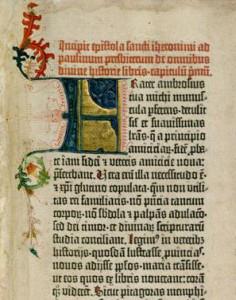 Incipit epistola sancti iheronimi ad
paulinum presbiterum de omnibus
divine historie libris. capitulũ p̃mũ.
Frater ambrosius
tua michi munus-
cula pferens. detulit
sil et suavissimas
lrãs. q̃ a principio
amiciciaʀ. fidẽ. pba-
te iam fidei et veteris amicicie nova:
pferebant. Vera eñ illa necessitudo ẽ.
et xp̃i glutino copulata. quã nõ vtili-
tas rei familiaris. nõ p̃ncia tantum
corpoꝝ. nõ sbdola et palpãs adulaco.
sed dei timor. et divinaꝝ scripturarũ
studia conciliant. Legimꝰ in veteribꝫ
historijs. quosdã lustrasse puincias.
novos adijsse pplos. maria trãsisse.
ut eos quos ex libris noverant: corã
qͦꝫ viderẽt. Sicut pitagoras memphi-